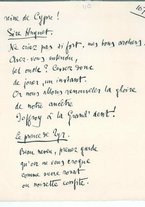 reine de Cypre !
Sire Huguet.
Ne criez pas si fort, mes bons archers.
Avez-vous entendu,
de jouer, un instant.
Or nous allons renouveler la gloire
de notre ancêtre
Joffroy à la Grand' dent !
Le prince de Tyr.
Beau neveu, prenez garde
qu'on ne vous croque
comme noix rosat
ou noisette confite.